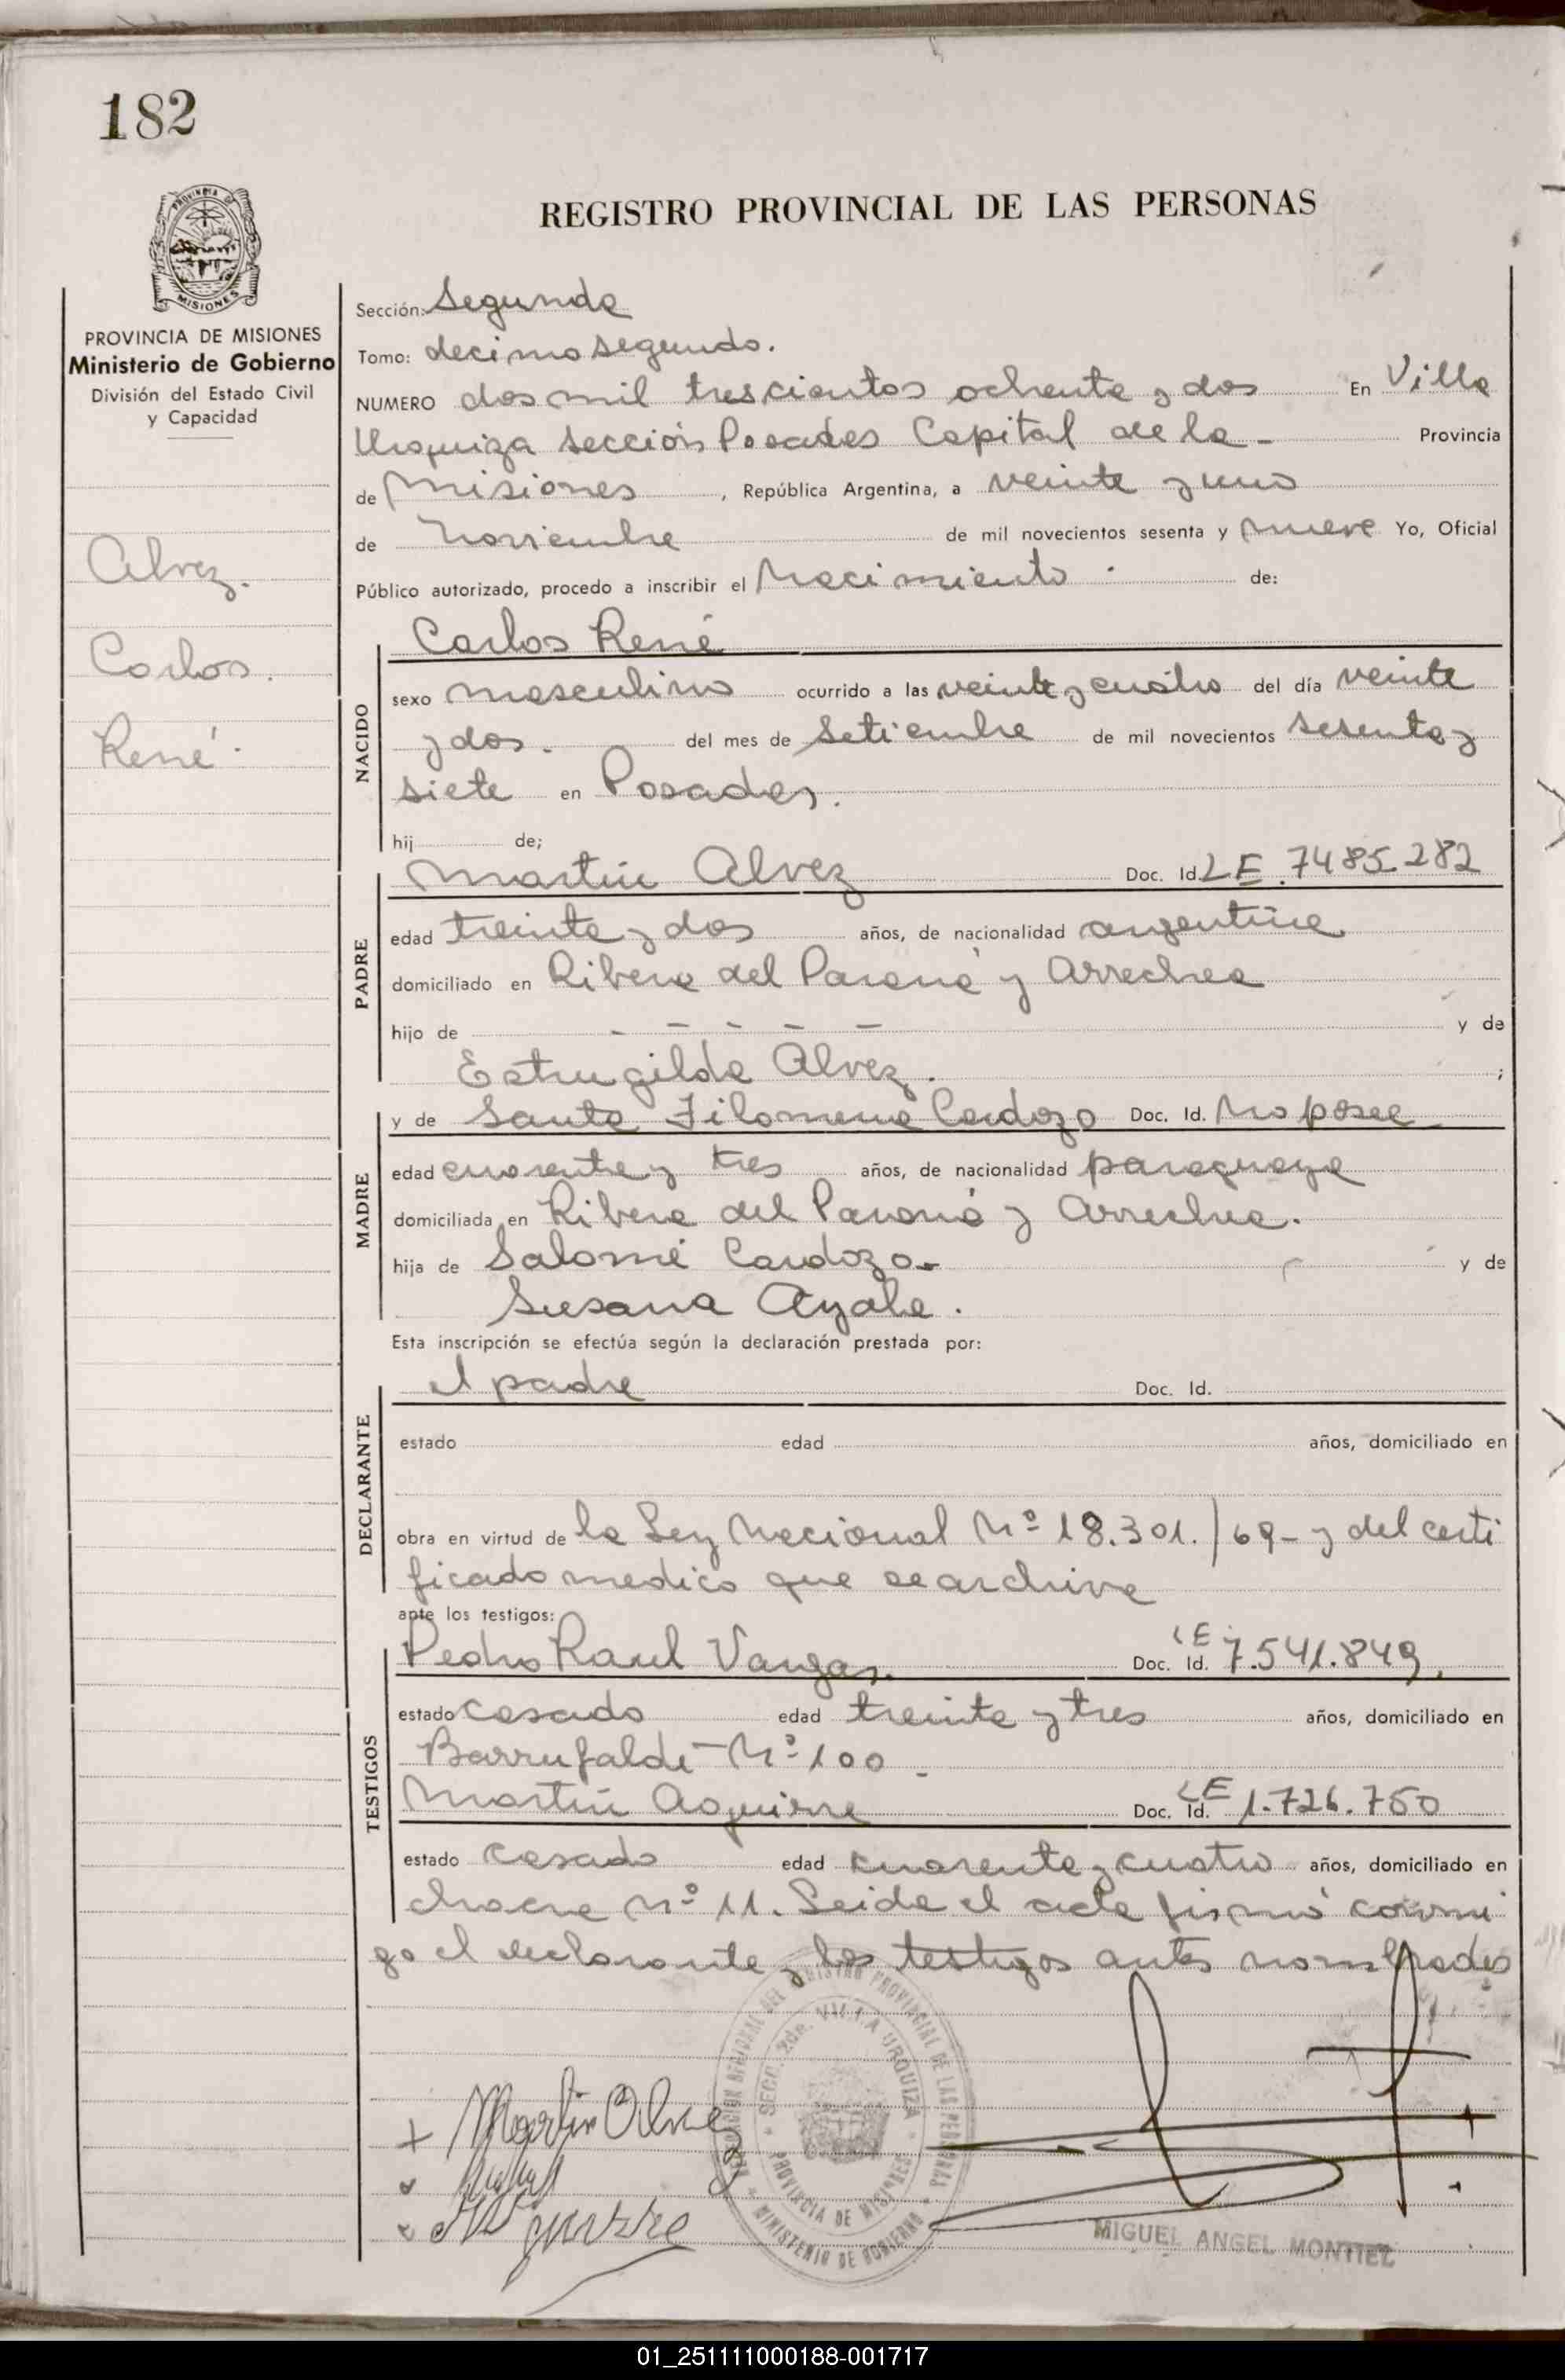 182
PROVINCIA DE MISIONES
PROVINCIA DE MISIONES
Ministerio de Gobierno
División del Estado Civil
y Capacidad
Alvez.
Carlos.
René.
REGISTRO PROVINCIAL DE LAS PERSONAS
Sección: Segunda
Tomo: decimo segundo.
NUMERO dos mil trescientos ochenta y dos En Villa
Urquiza sección Posadas Capital de la - Provincia
de Misiones, República Argentina, a veinte y uno
de Noviembre de mil novecientos sesenta y nueve Yo, Oficial
Público autorizado, procedo a inscribir el Nacimiento de:
Carlos René
NACIDO
sexo masculino ocurrido a las veinte y cuatro del día veinte
y dos. del mes de Setiembre de mil novecientos sesenta y
siete en Posadas.
hij de;
Martin Alvez Doc. Id LE. 7485282
PADRE
edad treinta y dos años, de nacionalidad argentina
domiciliado en Ribera del Paraná y Arrechea
hijo de - - - - - y de
Estrugilda Alvez. ;
y de Santa Filomena Cardozo Doc. Id. No posee
MADRE
edad cuarenta y tres años, de nacionalidad paraguaya
domiciliada en Ribera del Paraná y Arrechea.
hija de Salomé Cardozo- y de
Susana Ayala.
Esta inscripción se efectúa según la declaración prestada por:
el padre Doc. Id.
DECLARANTE
estado edad años, domiciliado en
obra en virtud de la Ley Nacional Nº 18.301./69- y del certi
ficado medico que se archiva
ante los testigos:
Pedro Raul Vargas. Doc. Id. LE 7.541.849,
TESTIGOS
estado casado edad treinta y tres años, domiciliado en
Barrufaldi - Nº 100 -
Martin Aguirre Doc. Id. LE 1.726.750
estado casado edad cuarenta y cuatro años, domiciliado en
chacra nº 11. Leida el acta firmó conmi
go el declarante y los testigos antes nombrados
Martin Alvez
SECC. 2da. VILLA URQUIZA
PROVINCIA DE MISIONES
REGISTRO PROVINCIAL DE LAS PERSONAS
MINISTERIO DE GOBIERNO
MIGUEL ANGEL MONTIEL
01_251111000188-001717